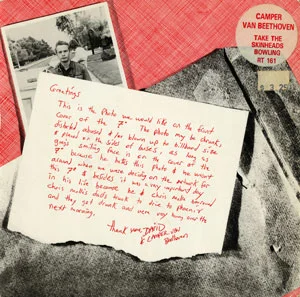 CAMPER
VAN BEETHOVEN
TAKE THE
SKINHEADS
BOWLING
RT 161
Greetings
This is the photo we would like on the front
cover of the 7". The photo may be
distorted, abused & / or blown up to billboard size
& placed on the sides of buses, as long as
guys smiling face is on the cover of the
7" because he hates this photo & we
around when we were deciding on the artwork for
this 7" & besides it was a very important day
in his life because he & Chris molla
Chris molla's dad's truck to drive to phoenix
and they got drunk and were very hung over the
next morning.
Thank you, DAVID
& CAMPER VAN
Beethoven